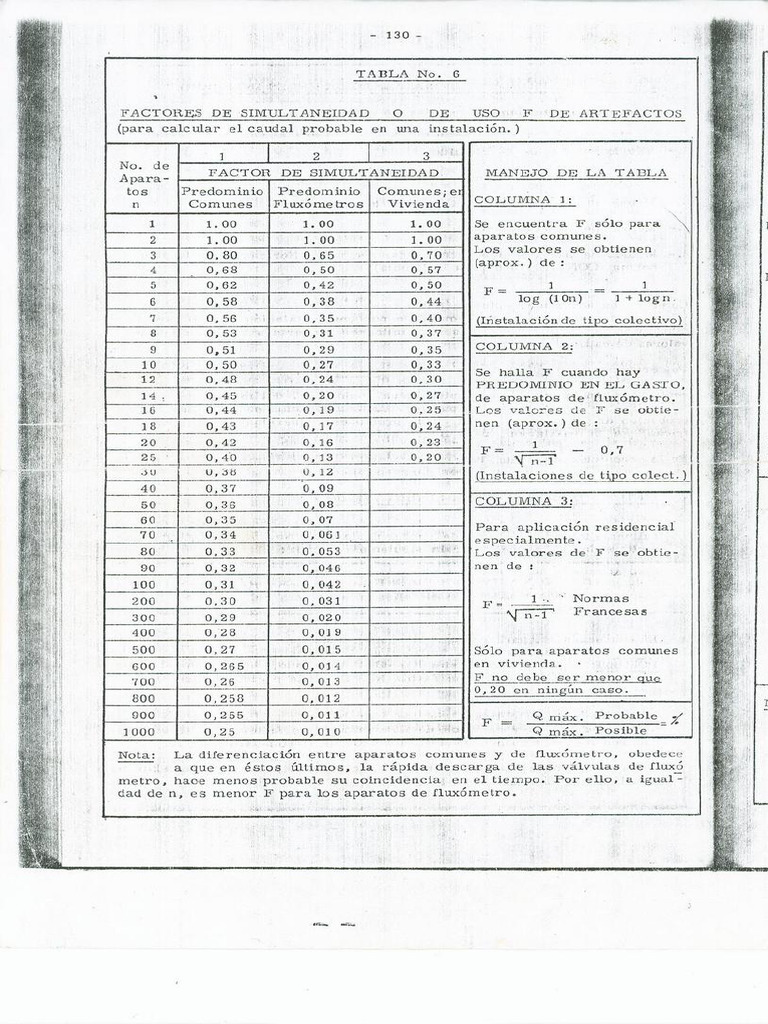 - 130 -
TABLA No. 6
FACTORES DE SIMULTANEIDAD O DE USO F DE ARTEFACTOS
(para calcular el caudal probable en una instalación.)
No. de Apara- tos n
1 2 3
FACTOR DE SIMULTANEIDAD
Predominio Comunes
Predominio Fluxómetros
Comunes; en Vivienda
1 1.00 1.00 1.00
2 1.00 1.00 1.00
3 0,80 0,65 0,70
4 0,68 0,50 0,57
5 0,62 0,42 0,50
6 0,58 0,38 0,44
7 0,56 0,35 0,40
8 0,53 0,31 0,37
9 0,51 0,29 0,35
10 0,50 0,27 0,33
12 0,48 0,24 0,30
14 0,45 0,20 0,27
16 0,44 0,19 0,25
18 0,43 0,17 0,24
20 0,42 0,16 0,23
25 0,40 0,13 0,20
30 0,38 0,12
40 0,37 0,09
50 0,36 0,08
60 0,35 0,07
70 0,34 0,061
80 0,33 0,053
90 0,32 0,046
100 0,31 0,042
200 0,30 0,031
300 0,29 0,020
400 0,28 0,019
500 0,27 0,015
600 0,265 0,014
700 0,26 0,013
800 0,258 0,012
900 0,255 0,011
1000 0,25 0,010
MANEJO DE LA TABLA
COLUMNA 1:
Se encuentra F sólo para
aparatos comunes.
Los valores se obtienen
(aprox.) de :
F = 1 / log (10n) = 1 / 1 + log n.
(Instalación de tipo colectivo)
COLUMNA 2:
Se halla F cuando hay
PREDOMINIO EN EL GASTO,
de aparatos de fluxómetro.
Los valores de F se obtie-
nen (aprox.) de :
F = 1 / √n-1 - 0,7
(Instalaciones de tipo colect.)
COLUMNA 3:
Para aplicación residencial
especialmente.
Los valores de F se obtie-
nen de :
F = 1 / √n-1 Normas Francesas
Sólo para aparatos comunes
en vivienda.
F no debe ser menor que
0,20 en ningún caso.
F = Q máx. Probable / Q máx. Posible = %
Nota: La diferenciación entre aparatos comunes y de fluxómetro, obedece
a que en éstos últimos, la rápida descarga de las válvulas de fluxó
metro, hace menos probable su coincidencia en el tiempo. Por ello, a igual-
dad de n, es menor F para los aparatos de fluxómetro.